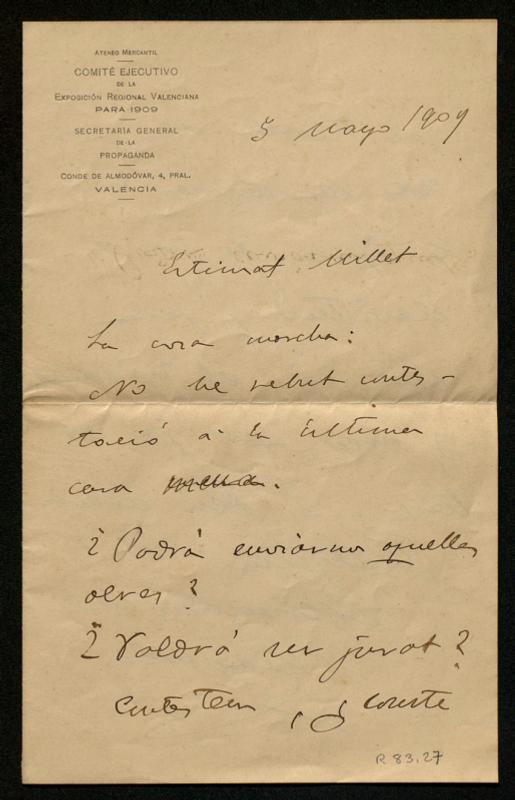 ATENEO MERCANTIL
COMITÉ EJECUTIVO
DE LA
EXPOSICIÓN REGIONAL VALENCIANA
PARA 1909
SECRETARÍA GENERAL
DE LA
PROPAGANDA
CONDE DE ALMODÓVAR, 4, PRAL.
VALENCIA
5 Mayo 1909
Estimat Millet
La cosa marcha:
No he rebut contes-
tació á la última
¿Podrá enviarnos aquelles
obres?
¿Voldrá ser jurat?
R 83.27